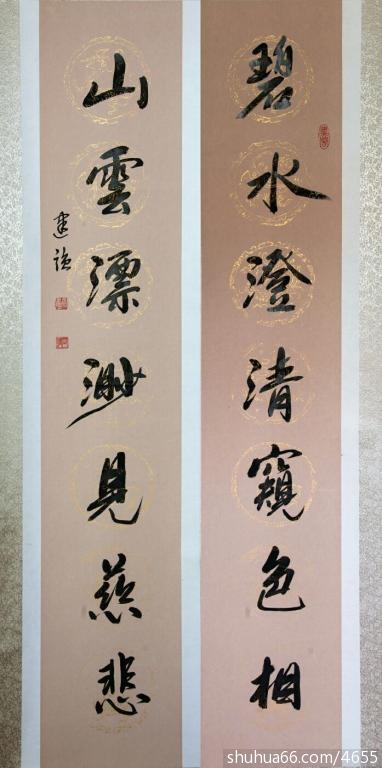 碧水澄清窺色相
山雲漂渺見慈悲
建
shuhua66.com/4655